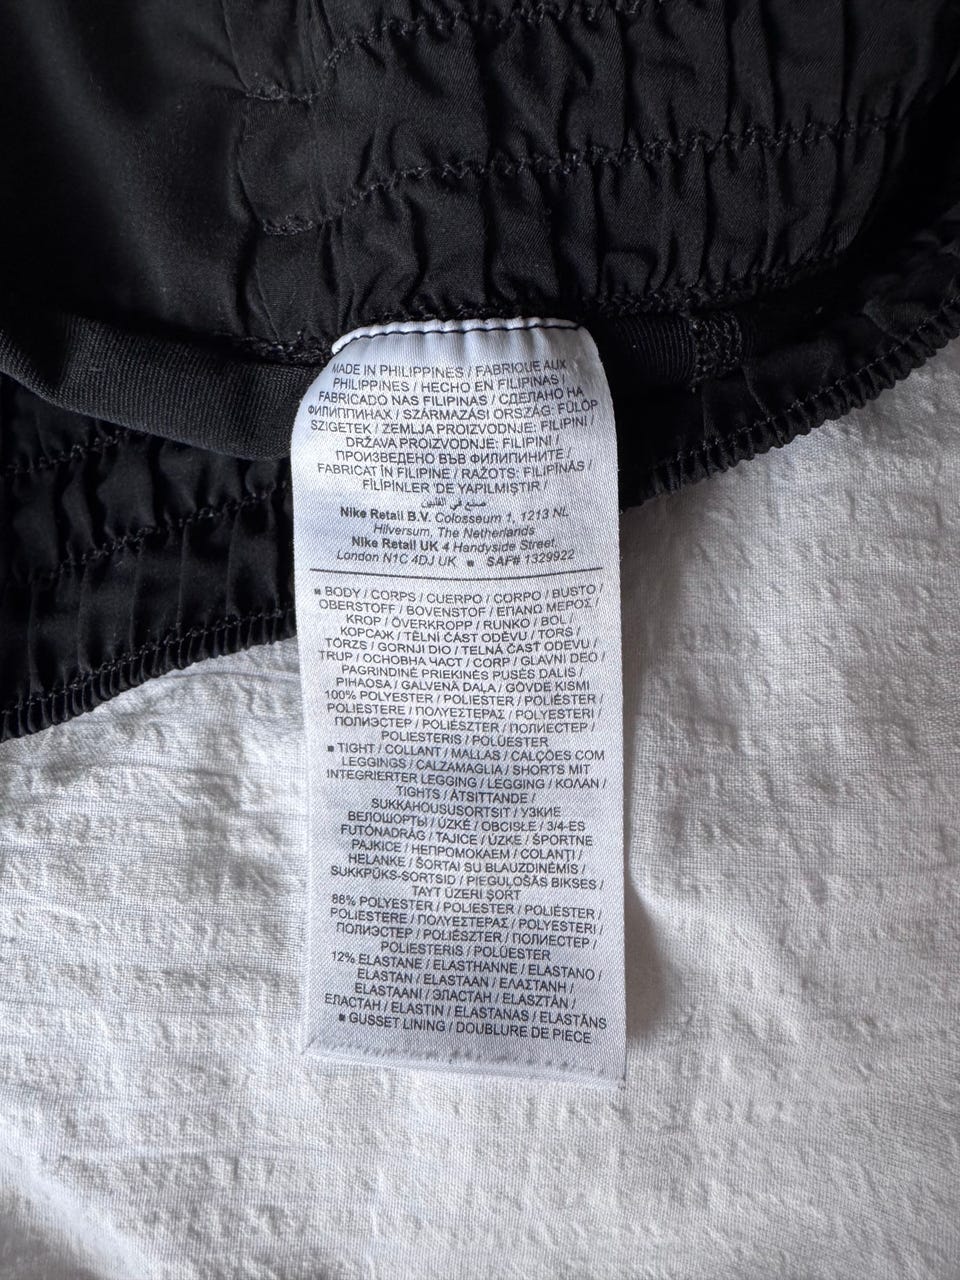 MADE IN PHILIPPINES / FABRIQUE AUX
PHILIPPINES / HECHO EN FILIPINAS /
FABRICADO NAS FILIPINAS / СДЕЛАНО НА
ФИЛИППИНАХ / SZÁRMAZÁSI ORSZÁG: FÜLÖP
SZIGETEK / ZEMLJA PROIZVODNJE: FILIPINI /
DRŽAVA PROIZVODNJE: FILIPINI /
ПРОИЗВЕДЕНО ВЪВ ФИЛИПИНИТЕ /
FABRICAT ÎN FILIPINE / RAŽOTS: FILIPĪNĀS /
FİLİPİNLER 'DE YAPILMIŞTIR /
صنع في الفلبين
Nike Retail B.V. Colosseum 1, 1213 NL
Hilversum, The Netherlands
Nike Retail UK 4 Handyside Street,
London N1C 4DJ UK ■ SAP# 1329922
■ BODY / CORPS / CUERPO / CORPO / BUSTO /
OBERSTOFF / BOVENSTOF / ΕΠΑΝΩ ΜΕΡΟΣ /
KROP / ÖVERKROPP / RUNKO / BOL /
КОРСАЖ / TĚLNÍ ČÁST ODĚVU / TORS /
TÖRZS / GORNJI DIO / TELNÁ ČASŤ ODEVU /
TRUP / ОСНОВНА ЧАСТ / CORP / GLAVNI DEO /
PAGRINDINĖ PRIEKINĖS PUSĖS DALIS /
PIHAOSA / GALVENĀ DAĻA / GÖVDE KISMI
100% POLYESTER / POLIESTER / POLIÉSTER /
POLIESTERE / ΠΟΛΥΕΣΤΕΡΑΣ / POLYESTERI /
ПОЛИЭСТЕР / POLIÉSZTER / ПОЛИЕСТЕР /
POLIESTERIS / POLÜESTER
■ TIGHT / COLLANT / MALLAS / CALÇÕES COM
LEGGINGS / CALZAMAGLIA / SHORTS MIT
INTEGRIERTER LEGGING / LEGGING / ΚΟΛΑΝ /
TIGHTS / ÅTSITTANDE /
SUKKAHOUSUSORTSIT / УЗКИЕ
ВЕЛОШОРТЫ / ÚZKÉ / OBCISŁE / 3/4-ES
FUTÓNADRÁG / TAJICE / ÚZKE / ŠPORTNE
PAJKICE / НЕПРОМОКАЕМ / COLANȚI /
HELANKE / ŠORTAI SU BLAUZDINĖMIS /
SUKKPÜKS-SORTSID / PIEGUĻOŠĀS BIKSES /
TAYT ÜZERİ ŞORT
88% POLYESTER / POLIESTER / POLIÉSTER /
POLIESTERE / ΠΟΛΥΕΣΤΕΡΑΣ / POLYESTERI /
ПОЛИЭСТЕР / POLIÉSZTER / ПОЛИЕСТЕР /
POLIESTERIS / POLÜESTER
12% ELASTANE / ELASTHANNE / ELASTANO /
ELASTAN / ELASTAAN / ΕΛΑΣΤΑΝΗ /
ELASTAANI / ЭЛАСТАН / ELASZTÁN /
ЕЛАСТАН / ELASTIN / ELASTANAS / ELASTĀNS
■ GUSSET LINING / DOUBLURE DE PIECE